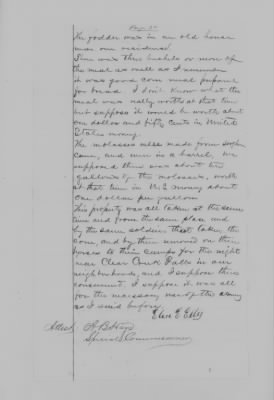 Page 5
The fodder was in an old house
near our residence.
There was three bushels or more of
the meal as well as I remember
it was good corn meal prepared
for bread. I don't know what the
meal was really worth at that time
but suppose it would be worth about
one dollar and fifty cents in United
States money.
The molasses was made from
cane, and was in a barrel, we
supposed there was about
gallons of the molasses, worth
at that time in U.S. money about
one dollar per gallon.
This property was all taken at the same
time and from the same place and
by the same soldiers that taken the
corn, and by them removed on their
horses to their camps for the night
near Clear Creek Falls in our
neighborhood, and I suppose there
consumed. I suppose it was all
for the necessary use of the army
as I said before.
Attest
Special Commissioner